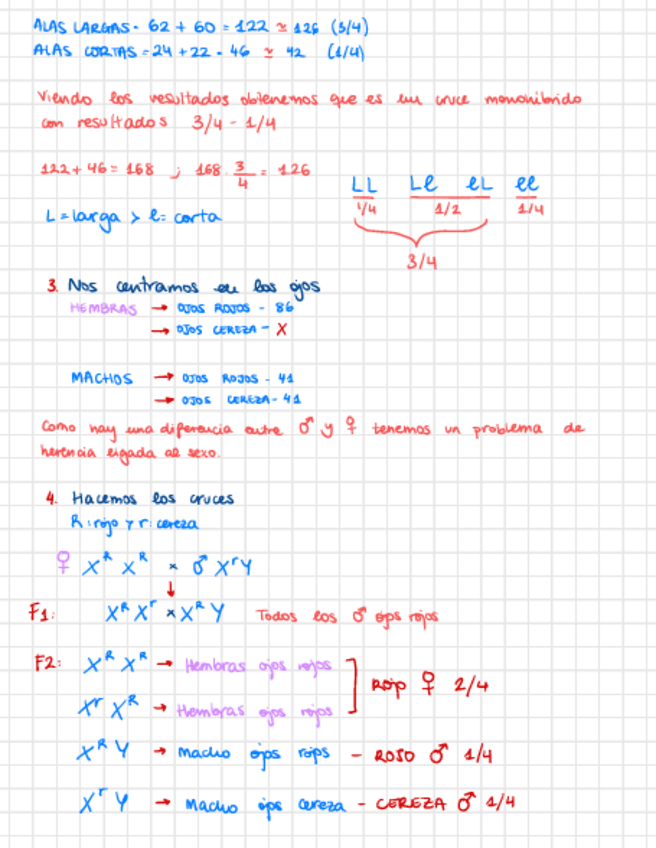 ALAS LARGAS - 62 + 60 = 122 ≃ 126 (3/4)
ALAS CORTAS = 24 + 22 = 46 ≃ 42 (1/4)
Viendo los resultados obtenemos que es un cruce monohíbrido
con resultados 3/4 - 1/4
122 + 46 = 168 ; 168 · 3/4 = 126
LL Lℓ ℓL ℓℓ
1/4 1/2 1/4
L = larga > ℓ = corta
3/4
3. Nos centramos en los ojos
HEMBRAS → OJOS ROJOS - 86
→ OJOS CEREZA - X
MACHOS → OJOS ROJOS - 41
→ OJOS CEREZA - 41
Como hay una diferencia entre ♂ y ♀ tenemos un problema de
herencia ligada al sexo.
4. Hacemos los cruces
R: rojo > r: cereza
♀ X^R X^R × ♂ X^r Y
↓
F1: X^R X^r × X^R Y Todos los ♂ ojos rojos
F2: X^R X^R → Hembras ojos rojos
Rojo ♀ 2/4
X^r X^R → Hembras ojos rojos
X^R Y → Macho ojos rojos - ROJO ♂ 1/4
X^r Y → Macho ojos cereza - CEREZA ♂ 1/4